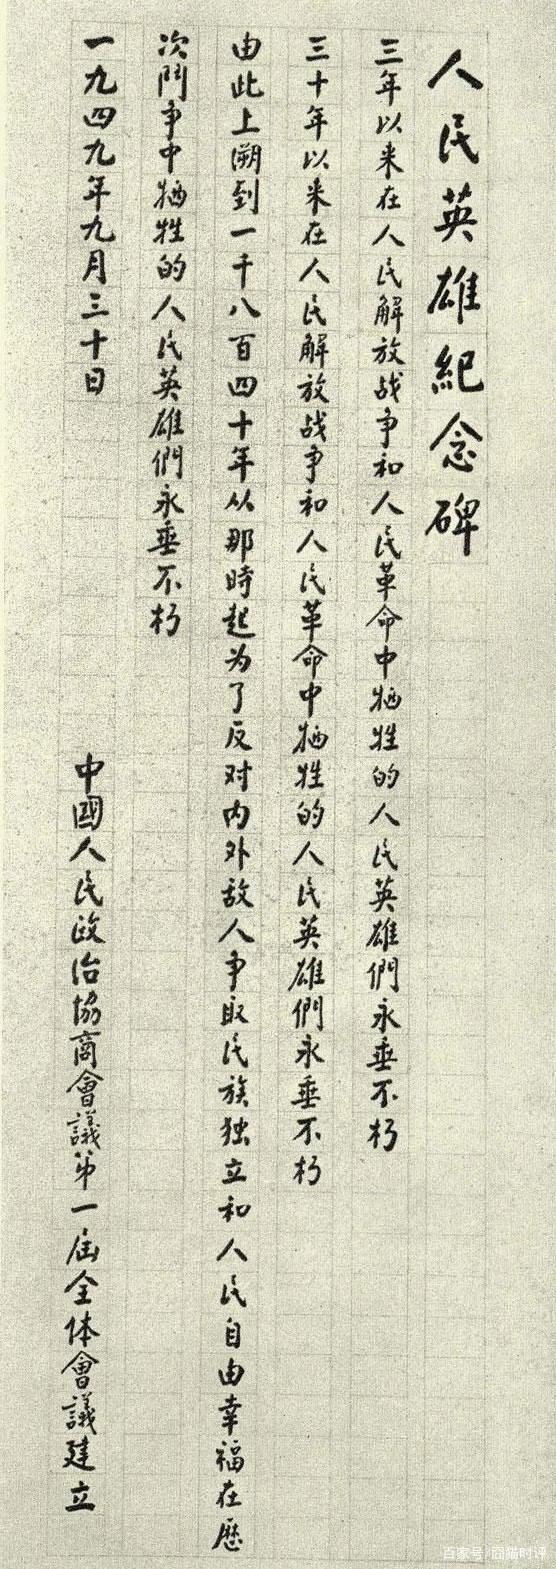 人民英雄紀念碑
三年以来在人民解放战争和人民革命中牺牲的人民英雄們永垂不朽
三十年以来在人民解放战争和人民革命中牺牲的人民英雄們永垂不朽
由此上溯到一千八百四十年从那時起为了反对内外敌人争取民族独立和人民自由幸福在歷
次鬥争中牺牲的人民英雄們永垂不朽
一九四九年九月三十日
中國人民政治協商會議第一届全体會議建立
百家号/囧猫时评